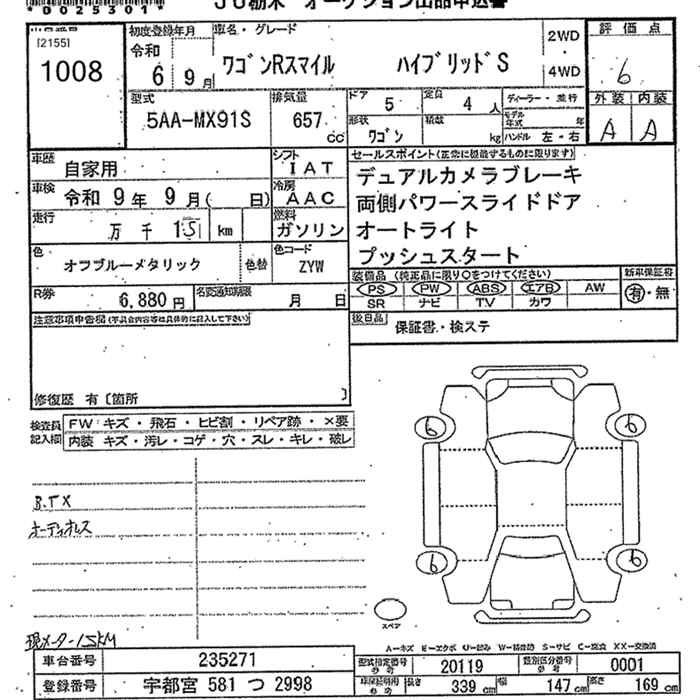 *0025301*
JU栃木 オークション出品申込書
[2155]
1008
初度登録年月
令和
6 9月
車名・グレード
ワゴンRスマイル ハイブリッドS
2WD
4WD
評価点
6
外装 内装
A A
型式
5AA-MX91S
排気量
657 cc
ドア
5
定員
4 人
形状
ワゴン
積載
kg
ディーラー・並行
モデル年式 年
ハンドル 左・右
車歴
自家用
シフト
IAT
車検
令和 9年 9月( 日)
冷房
AAC
走行
万 千 15 km
燃料
ガソリン
色
オフブルーメタリック
色替
色コード
ZYW
R券
6,880円
名変通知期限
月 日
セールスポイント(正常に機能するものに限ります)
デュアルカメラブレーキ
両側パワースライドドア
オートライト
プッシュスタート
装備品 (純正品に限り○をつけてください)
PS PW ABS エアB AW
SR ナビ TV カワ
新車保証書
有・無
後日品
保証書・検ステ
注意事項申告欄(不具合内容等は具体的に記入して下さい)
修復歴 有〔箇所 〕
検査員記入欄
FW キズ・飛石・ヒビ割・リペア跡・×要
内装 キズ・汚レ・コゲ・穴・スレ・キレ・破レ
オーディオレス
現メーター15KM
6 6
6 6
スペア
A−キズ E−エクボ U−凹み W−補修跡 S−サビ C−腐食 XX−交換済
車台番号 235271
登録番号 宇都宮 581 つ 2998
型式指定番号 20119
類別区分番号 0001
長さ 339 cm 幅 147 cm 高さ 169 cm